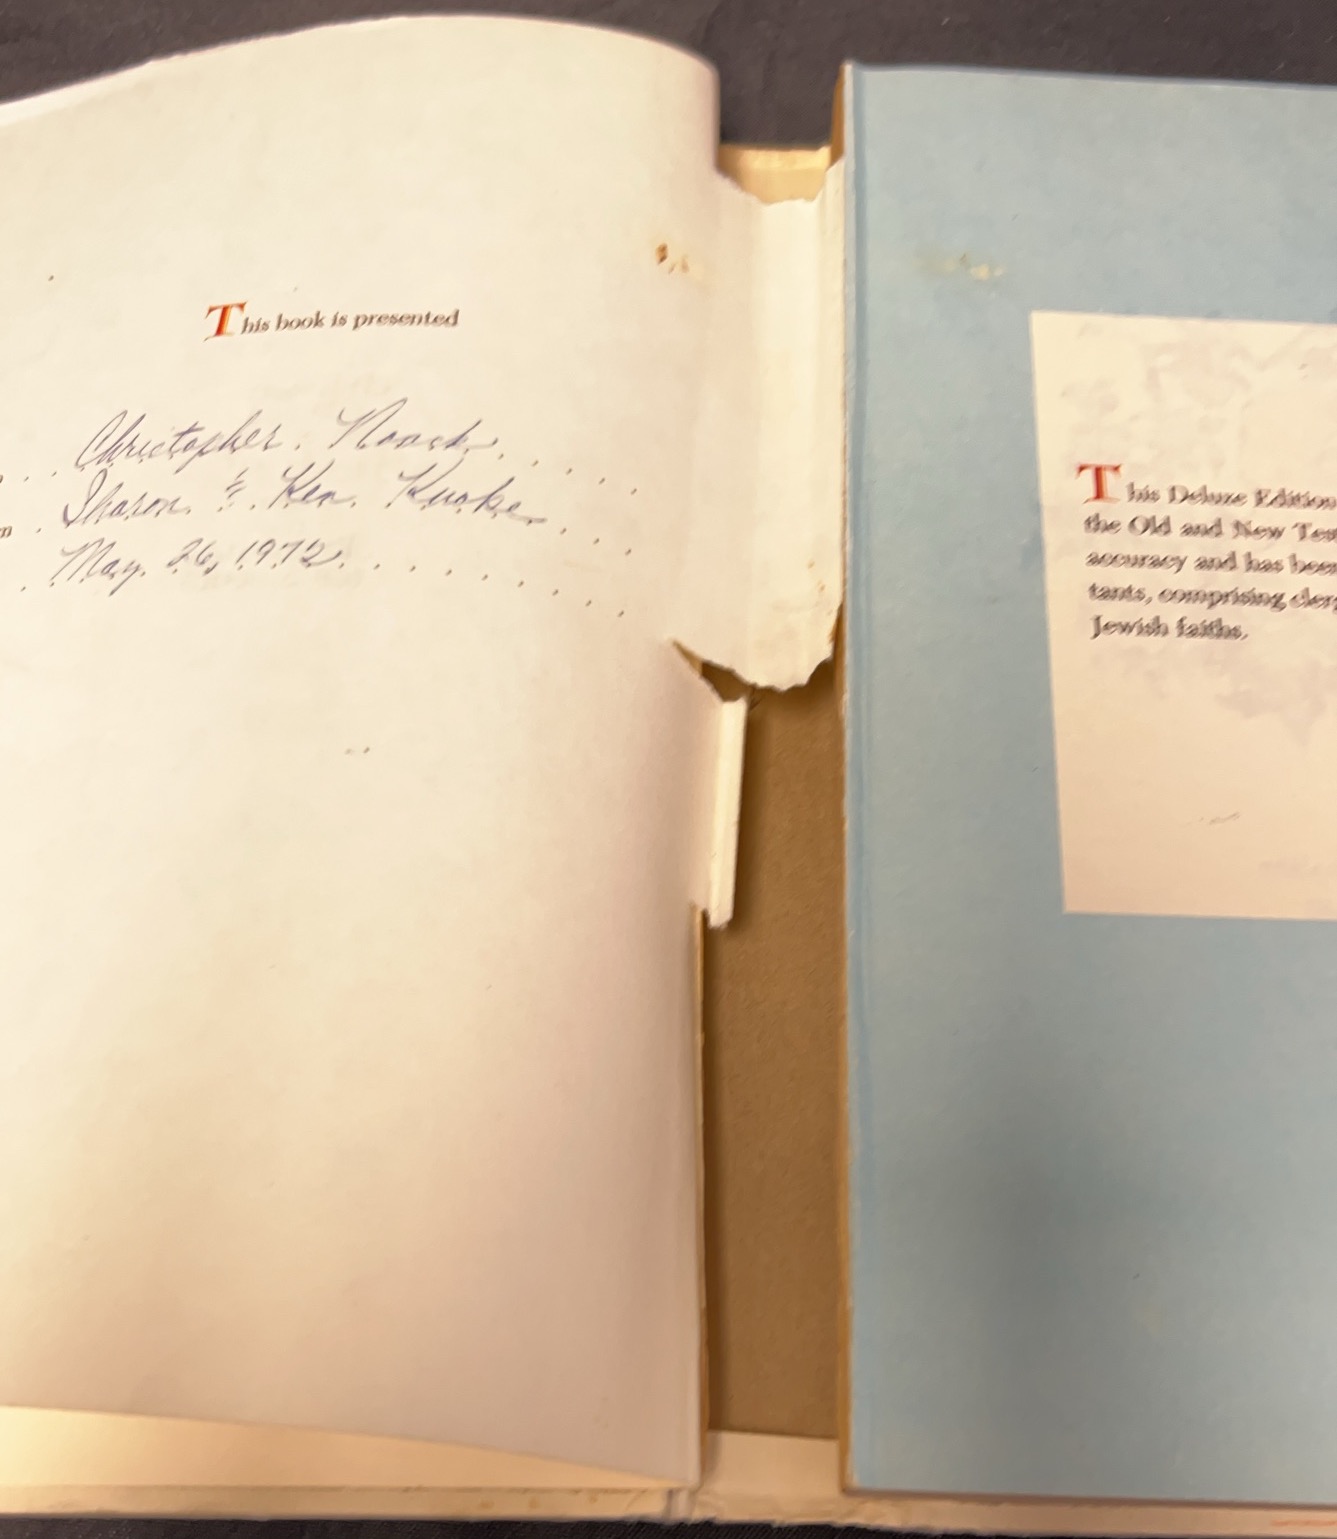 This book is presented
Christopher Noack
Sharon & Ken Kuoke
m
May 26, 1972
This Deluxe Edition
the Old and New Tes
accuracy and has been
tants, comprising cler
Jewish faiths.